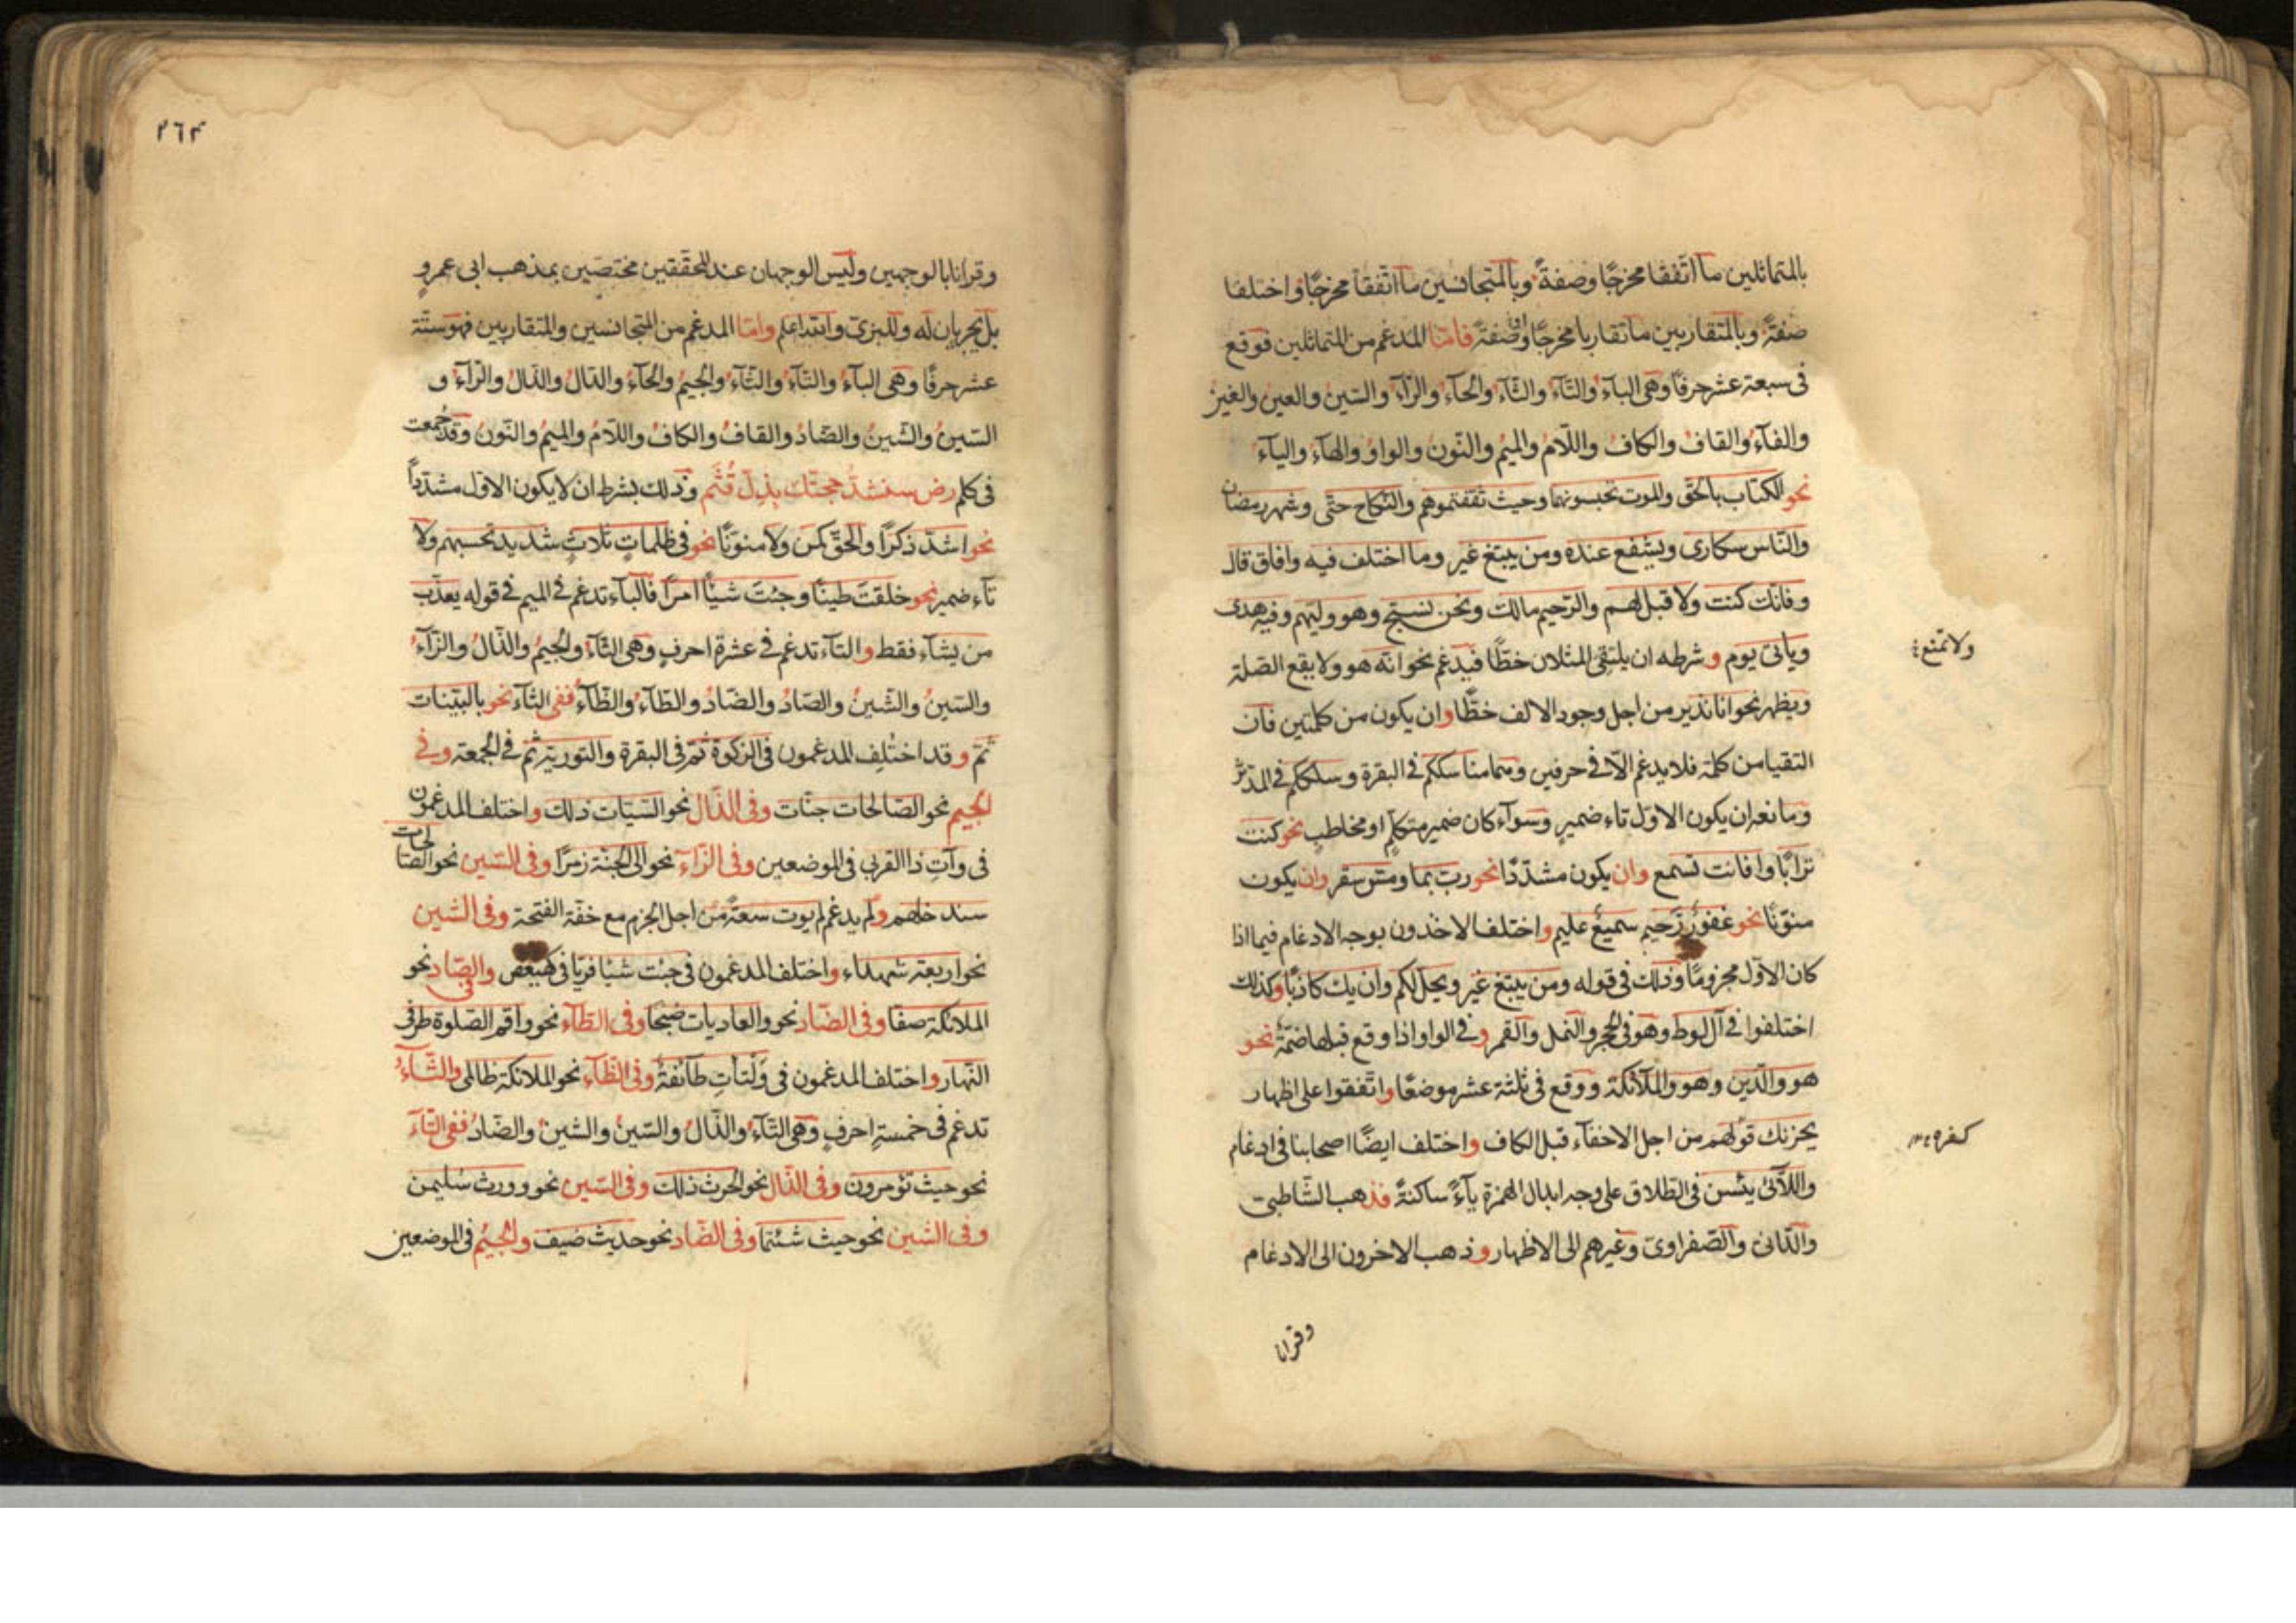 بالمتماثلين ما اتّفقا مخرجًا وصفةً وبالمتجانسين ما اتّفقا مخرجًا واختلفا
صفةً وبالمتقاربين ما تقاربا مخرجًا او صفةً فامّا المدغم من المتماثلين فوقع
فى سبعة عشر حرفًا وهى الباء والتّاء والثّاء والحاء والرّاء والسّين والعين والغين
والفاء والقاف والكاف واللّام والميم والنّون والواو والهاء والياء
نحو الكتاب بالحقّ والموت تحبسونهما وحيث ثقفتموهم والنّكاح حتّى وشهر رمضان
والنّاس سكارى ويشفع عنده ومن يبتغ غير وما اختلف فيه وافاق قال
وفانّك كنت ولا قبل لهم والرّحيم مالك ونحن نسبّح وهو وليّهم وفيه هدى
ويأتى يوم وشرطه ان يلتقى المثلان خطًّا فيدغم نحو انّه هو ولا يقع الصّلة
ولا تمنع
ويظهر نحو انا نذير من اجل وجود الالف خطًّا وان يكون من كلمتين فان
التقيا من كلمة فلا يدغم الّا فى حرفين وهما مناسككم فى البقرة وسلككم فى المدثّر
ومانعه ان يكون الاوّل تاء ضمير وسواء كان ضمير متكلّم او مخاطب نحو كنت
ترابًا وافانت تسمع وان يكون مشدّدًا نحو ربّ بما ومسّ سقر وان يكون
منوّنًا نحو غفورٌ رّحيم سميعٌ عليم واختلف الاخذون بوجه الادغام فيما اذا
كان الاوّل مجزومًا وذلك فى قوله ومن يبتغ غير ويخل لكم وان يك كاذبًا وكذلك
اختلفوا فى آل لوط وهو فى الحجر والنّمل والقمر وفى الواو اذا وقع قبلها ضمّة نحو
هو والّذين وهو والملائكة ووقع فى ثلثة عشر موضعًا واتّفقوا على اظهار
يحزنك قولهم من اجل الاخفاء قبل الكاف واختلف ايضًا اصحابنا فى ادغام
واللّآئى يئسن فى الطّلاق على وجه ابدال الهمزة ياءً ساكنةً فذهب الشّاطبى
والدّانى والصّفراوى وغيرهم الى الاظهار وذهب الاخرون الى الادغام
وقرانا
٢٦٣
وقرانا بالوجهين وليس الوجهان عند المحقّقين مختصّين بمذهب ابى عمرو
بل يجريان له وللبزّىّ والله اعلم وامّا المدغم من المتجانسين والمتقاربين فهو ستّة
عشر حرفًا وهى الباء والتّاء والثّاء والجيم والحاء والدّال والذّال والرّاء و
السّين والشّين والضّاد والقاف والكاف واللّام والميم والنّون وقد جُمعت
فى كلم رض سنشدّ حجّتك بذل قُثَم وذلك بشرط ان لا يكون الاوّل مشدّدًا
نحو اشدّ ذكرًا والحقّ كمن ولا منوّنًا نحو فى ظلماتٍ ثلاثٍ شديد تحسبهم ولا
تاء ضمير نحو خلقت طينًا وجئت شيئًا امرًا فالباء تدغم فى الميم فى قوله يعذّب
من يشاء فقط والتاء تدغم فى عشرة احرف وهى الثّاء والجيم والذّال والزّاء
والسّين والشّين والصّاد والضّاد والطّاء والظّاء ففى الثّاء نحو بالبيّنات
ثمّ وقد اختُلف المدغمون فى الزكوة ثمّ فى البقرة والتورية ثم فى الجمعة وفى
الجيم نحو الصّالحات جنّات وفى الذّال نحو السّيّات ذلك واختلف المدغمون
فى وآتِ ذا القربى فى الموضعين وفى الزّاء نحو الى الجنّة زمرًا وفى السّين نحو الصّالحات
سندخلهم ولم يدغم لم يوت سعةً من اجل الجزم مع خفّة الفتحة وفى الشّين
نحو اربعة شهداء واختلف المدغمون فى جئت شيئًا فريّا فى كهيعص وفى الصّاد نحو
الملائكة صفّا وفى الضّاد نحو والعاديات ضبحًا وفى الطّاء نحو واقم الصّلوة طرفى
النّهار واختلف المدغمون فى وَلتأتِ طآئفةٌ وفى الظّاء نحو الملائكة ظالمى والثّاء
تدغم فى خمسة احرف وهى التّاء والذّال والسّين والشين والضّاد ففى التّاء
نحو حيث تؤمرون وفى الذّال نحو الحرث ذلك وفى السّين نحو وورث سليمن
وفى الشّين نحو حيث شئتما وفى الضّاد نحو حديث ضيف والجيم فى الموضعين